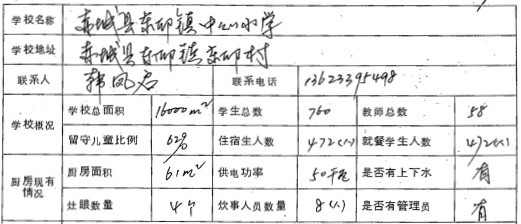 学校名称 赤城县东卯镇中心小学
学校地址 赤城县东卯镇东卯村
联系人 韩凤君 联系电话 13623395498
学校概况
学校总面积 16000m² 学生总数 760 教师总数 58
留守儿童比例 62% 住宿生人数 472(人) 就餐学生人数 472(人)
厨房现有情况
厨房面积 61m² 供电功率 50千瓦 是否有上下水 有
灶眼数量 4个 炊事人员数量 8(人) 是否有管理员 有